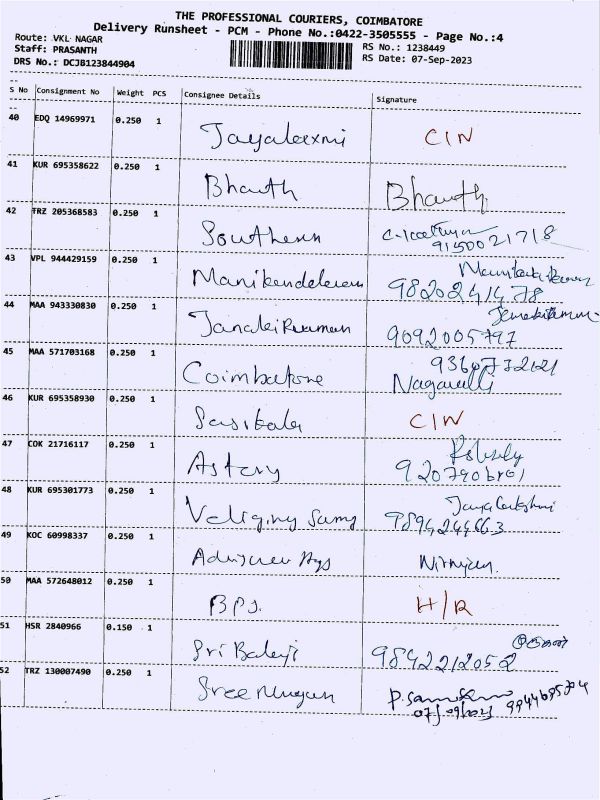 THE PROFESSIONAL COURIERS, COIMBATORE
Delivery Runsheet - PCM - Phone No.:0422-3505555 - Page No.:4
Route: VKL NAGAR
RS No.: 1238449
Staff: PRASANTH
RS Date: 07-Sep-2023
DRS No.: DCJB123844904
S No Consignment No Weight PCS Consignee Details Signature
40 EDQ 14969971 0.250 1 CIN
41 KUR 695358622 0.250 1 Bhauth Bhauth
42 TRZ 205368583 0.250 1 Southern
9150021718
43 VPL 944429159 0.250 1
9820241478
44 MAA 943330830 0.250 1
9092005797
45 MAA 571703168 0.250 1 Coimbatore
46 KUR 695358930 0.250 1 Sasikala CIN
47 COK 21716117 0.250 1
48 KUR 695301773 0.250 1
9894244663
49 KOC 60998337 0.250 1
50 MAA 572648012 0.250 1 BPS. H/R
51 HSR 2840966 0.150 1 Sri Balaji 9842212052
52 TRZ 130007490 0.250 1 Sree Murugan